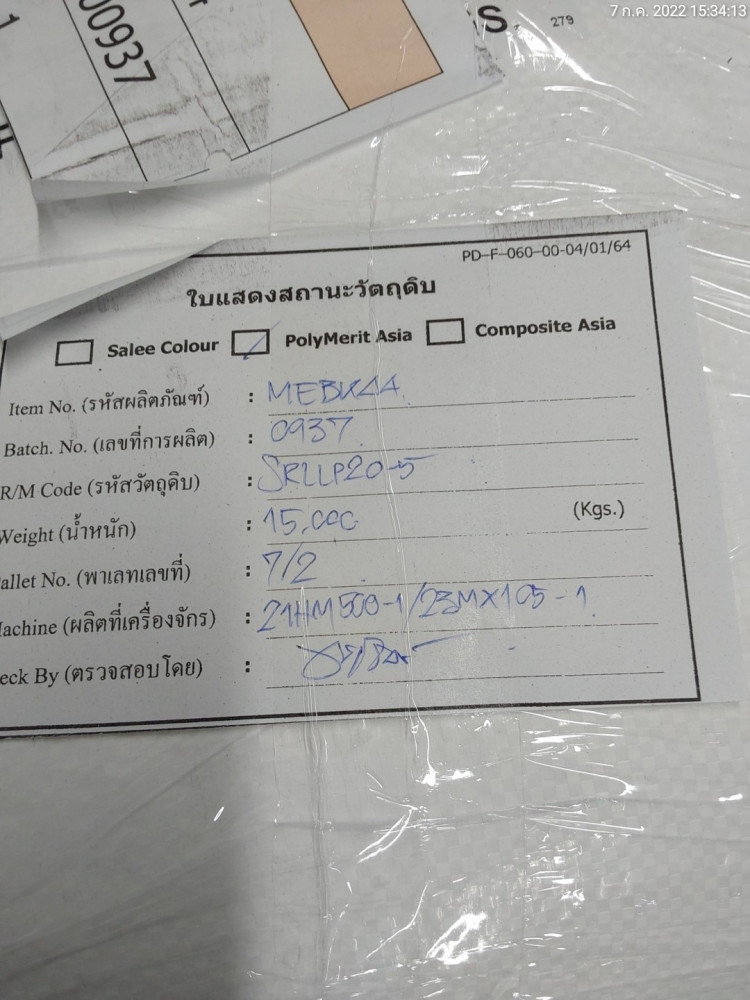 7 ก.ค. 2022 15:34:13
S
279
00937
PD-F-060-00-04/01/64
ใบแสดงสถานะวัตถุดิบ
Salee Colour PolyMerit Asia Composite Asia
Item No. (รหัสผลิตภัณฑ์) : MEBK44
Batch. No. (เลขที่การผลิต) : 0937
R/M Code (รหัสวัตถุดิบ) : SRLLP20-5
Weight (น้ำหนัก) : 15,000 (Kgs.)
allet No. (พาเลทเลขที่) : 7/2
achine (ผลิตที่เครื่องจักร) : 21HM500-1/23MX105-1
eck By (ตรวจสอบโดย) :